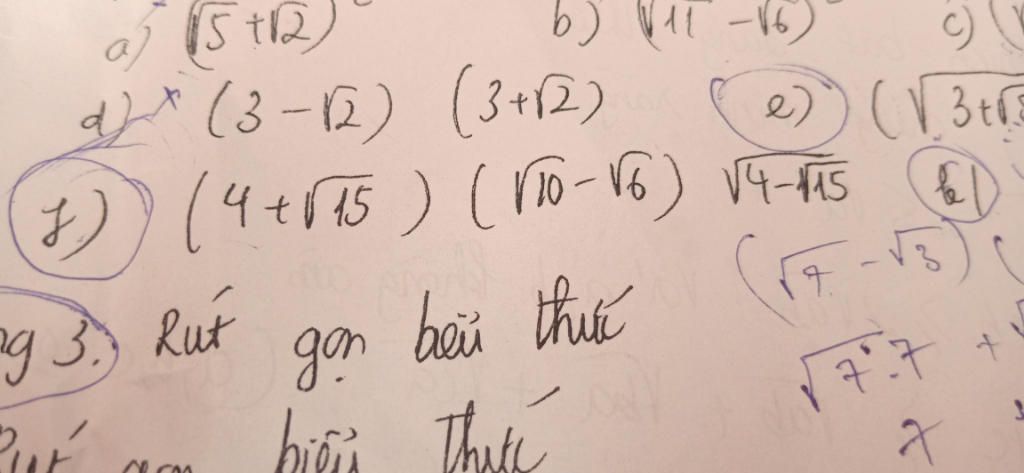 a) (√5 + √2)² b) (√11 - √6)² c) (√
d) (3 - √2) (3 + √2) e) (√3+√3
f) (4 + √15) (√10 - √6) √4-√15
(√7 - √3) (
ng 3. Rút gọn biểu thức
√7.7 + √
7
Rút gọn biểu thức